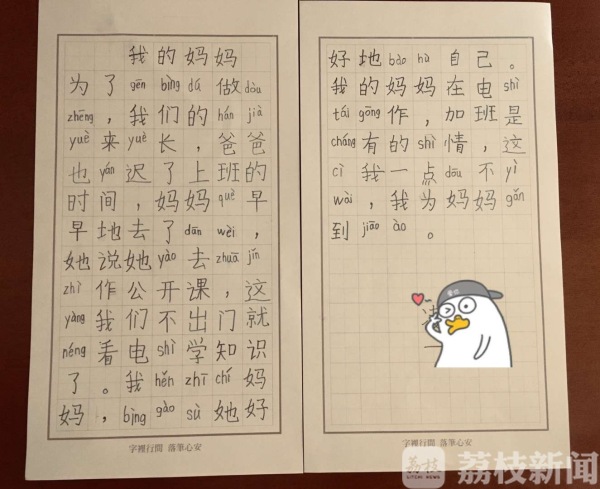 我的妈妈
为了gēn bìng dú做dòu
zhēng，我们的hán jià
yuè来yuè长，爸爸
也yán迟了上班的
时间，妈妈què早
早地去了dān wèi，
她说她yào去zhuā jǐn
zhì作公开课，这
yàng我们不出门就
néng看电shì学知识
了。我hěn zhī chí妈
妈，bìng gào sù她好
好地bǎo hù自己。
我的妈妈在电shì
tái gōng作，加班是
cháng有的shì情，这
cì我一点dōu不yì
wài，我为妈妈gǎn
到jiāo ào。
字裡行間 落筆心安
字裡行間 落筆心安
荔枝
LITCHI NEWS
荔枝新闻